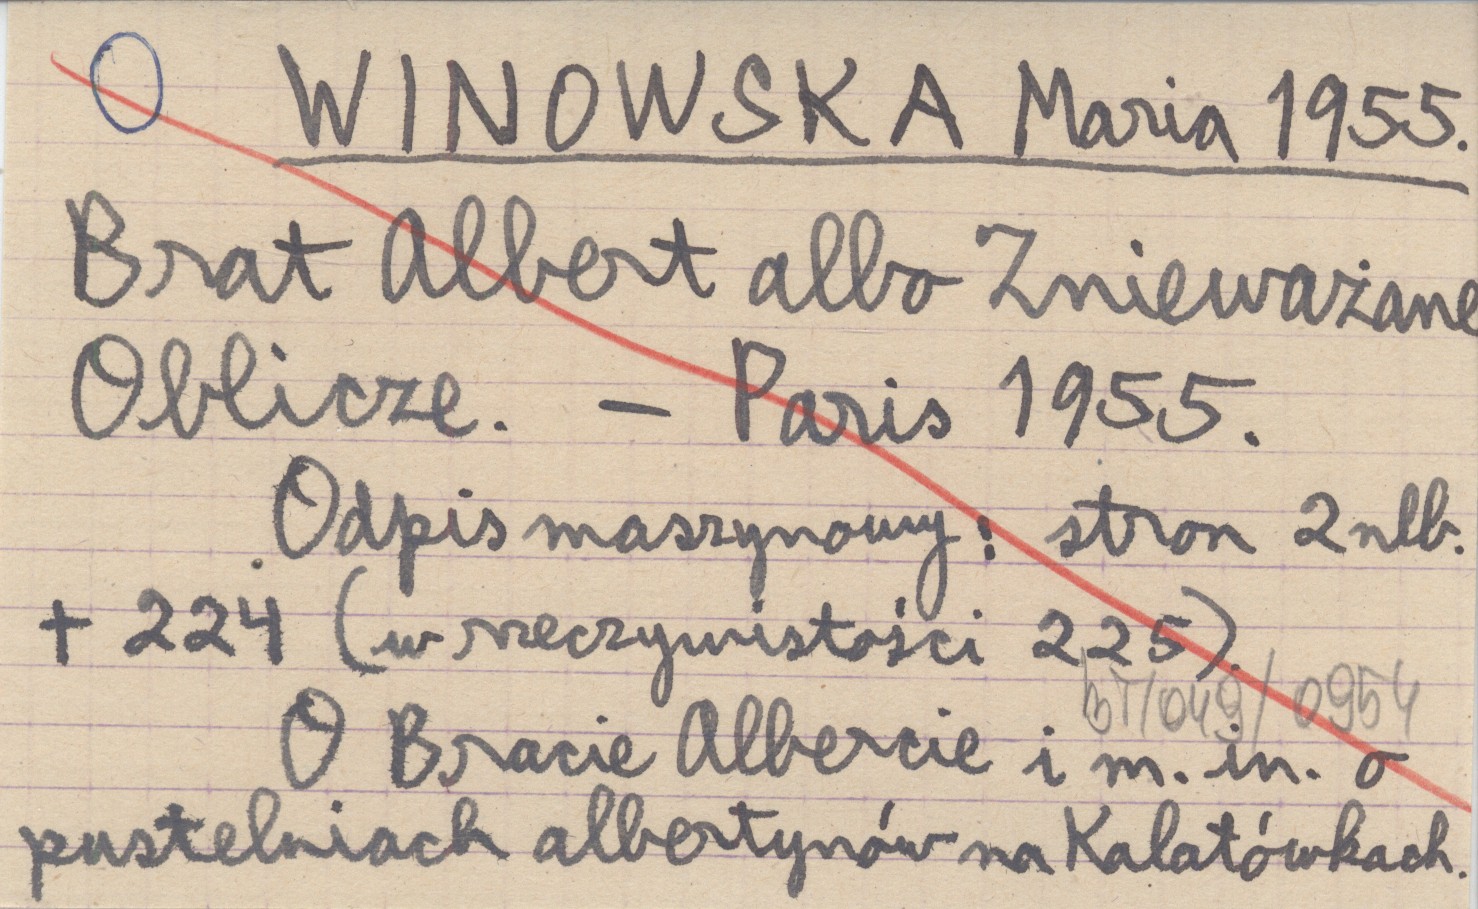 O WINOWSKA Maria 1955.
Brat Albert albo Znieważane
Oblicze. – Paris 1955.
Odpis maszynowy: stron 2 nlb.
+ 224 (w rzeczywistości 225).
bT/049/0954
O Bracie Albercie i m. in. o
pustelniach albertynów na Kalatówkach.